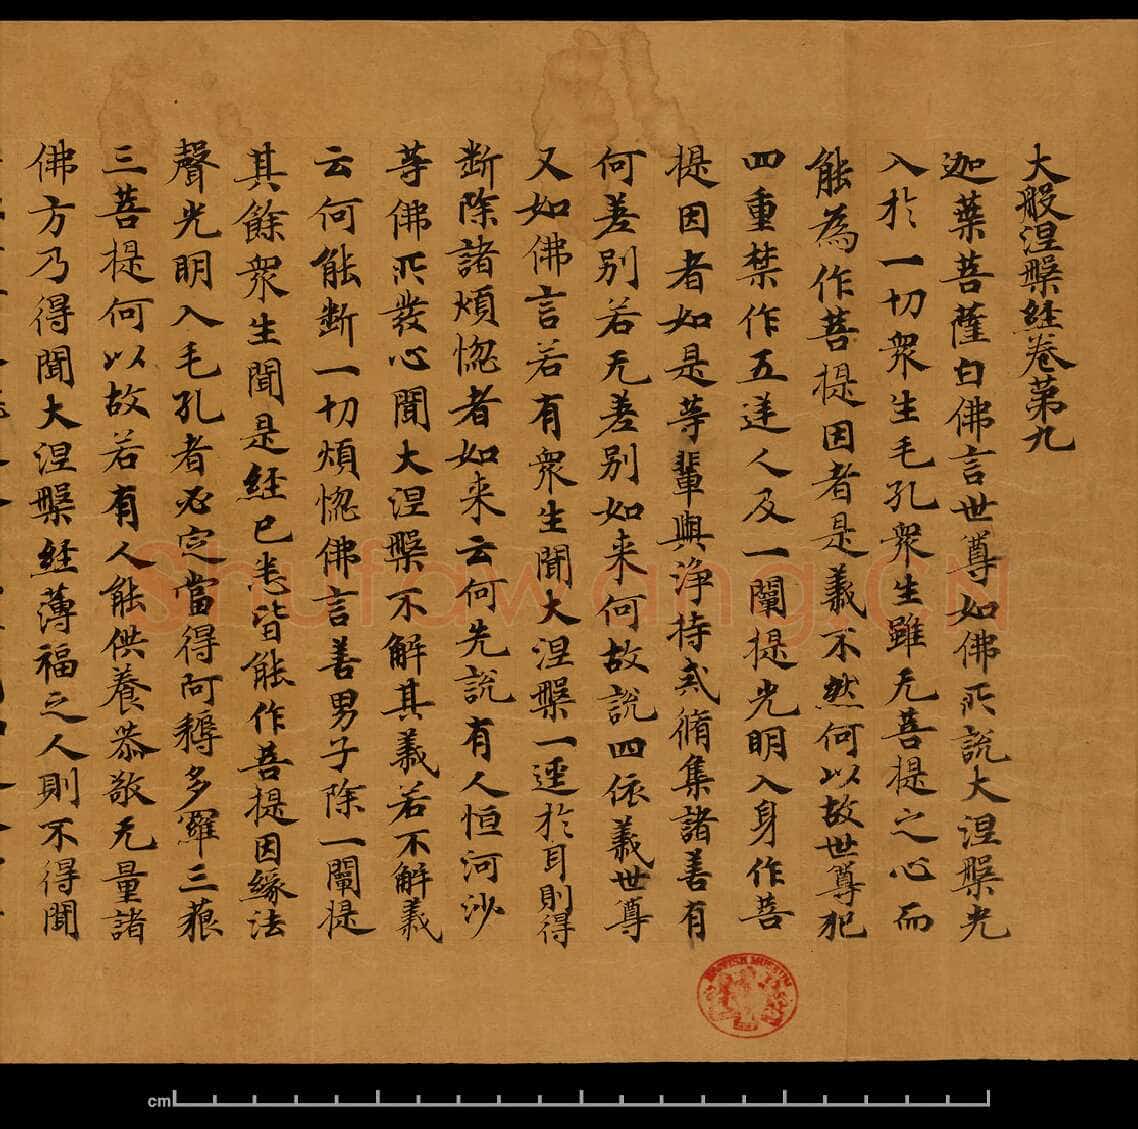 大般涅槃經卷第九
迦葉菩薩白佛言世尊如佛所說大涅槃光
入於一切衆生毛孔衆生雖无菩提之心而
能為作菩提因者是義不然何以故世尊犯
四重禁作五逆人及一闡提光明入身作菩
提因者如是等輩與淨持戒脩集諸善有
何差別若无差別如来何故說四依義世尊
又如佛言若有衆生聞大涅槃一逕於耳則得
斷除諸煩惱者如来云何先說有人恒河沙
等佛所發心聞大涅槃不解其義若不解義
云何能斷一切煩惱佛言善男子除一闡提
其餘衆生聞是經已悉皆能作菩提因緣法
聲光明入毛孔者必定當得阿耨多羅三藐
三菩提何以故若有人能供養恭敬无量諸
佛方乃得聞大涅槃經薄福之人則不得聞
BRITISH MUSEUM
shufawang.cn
cm